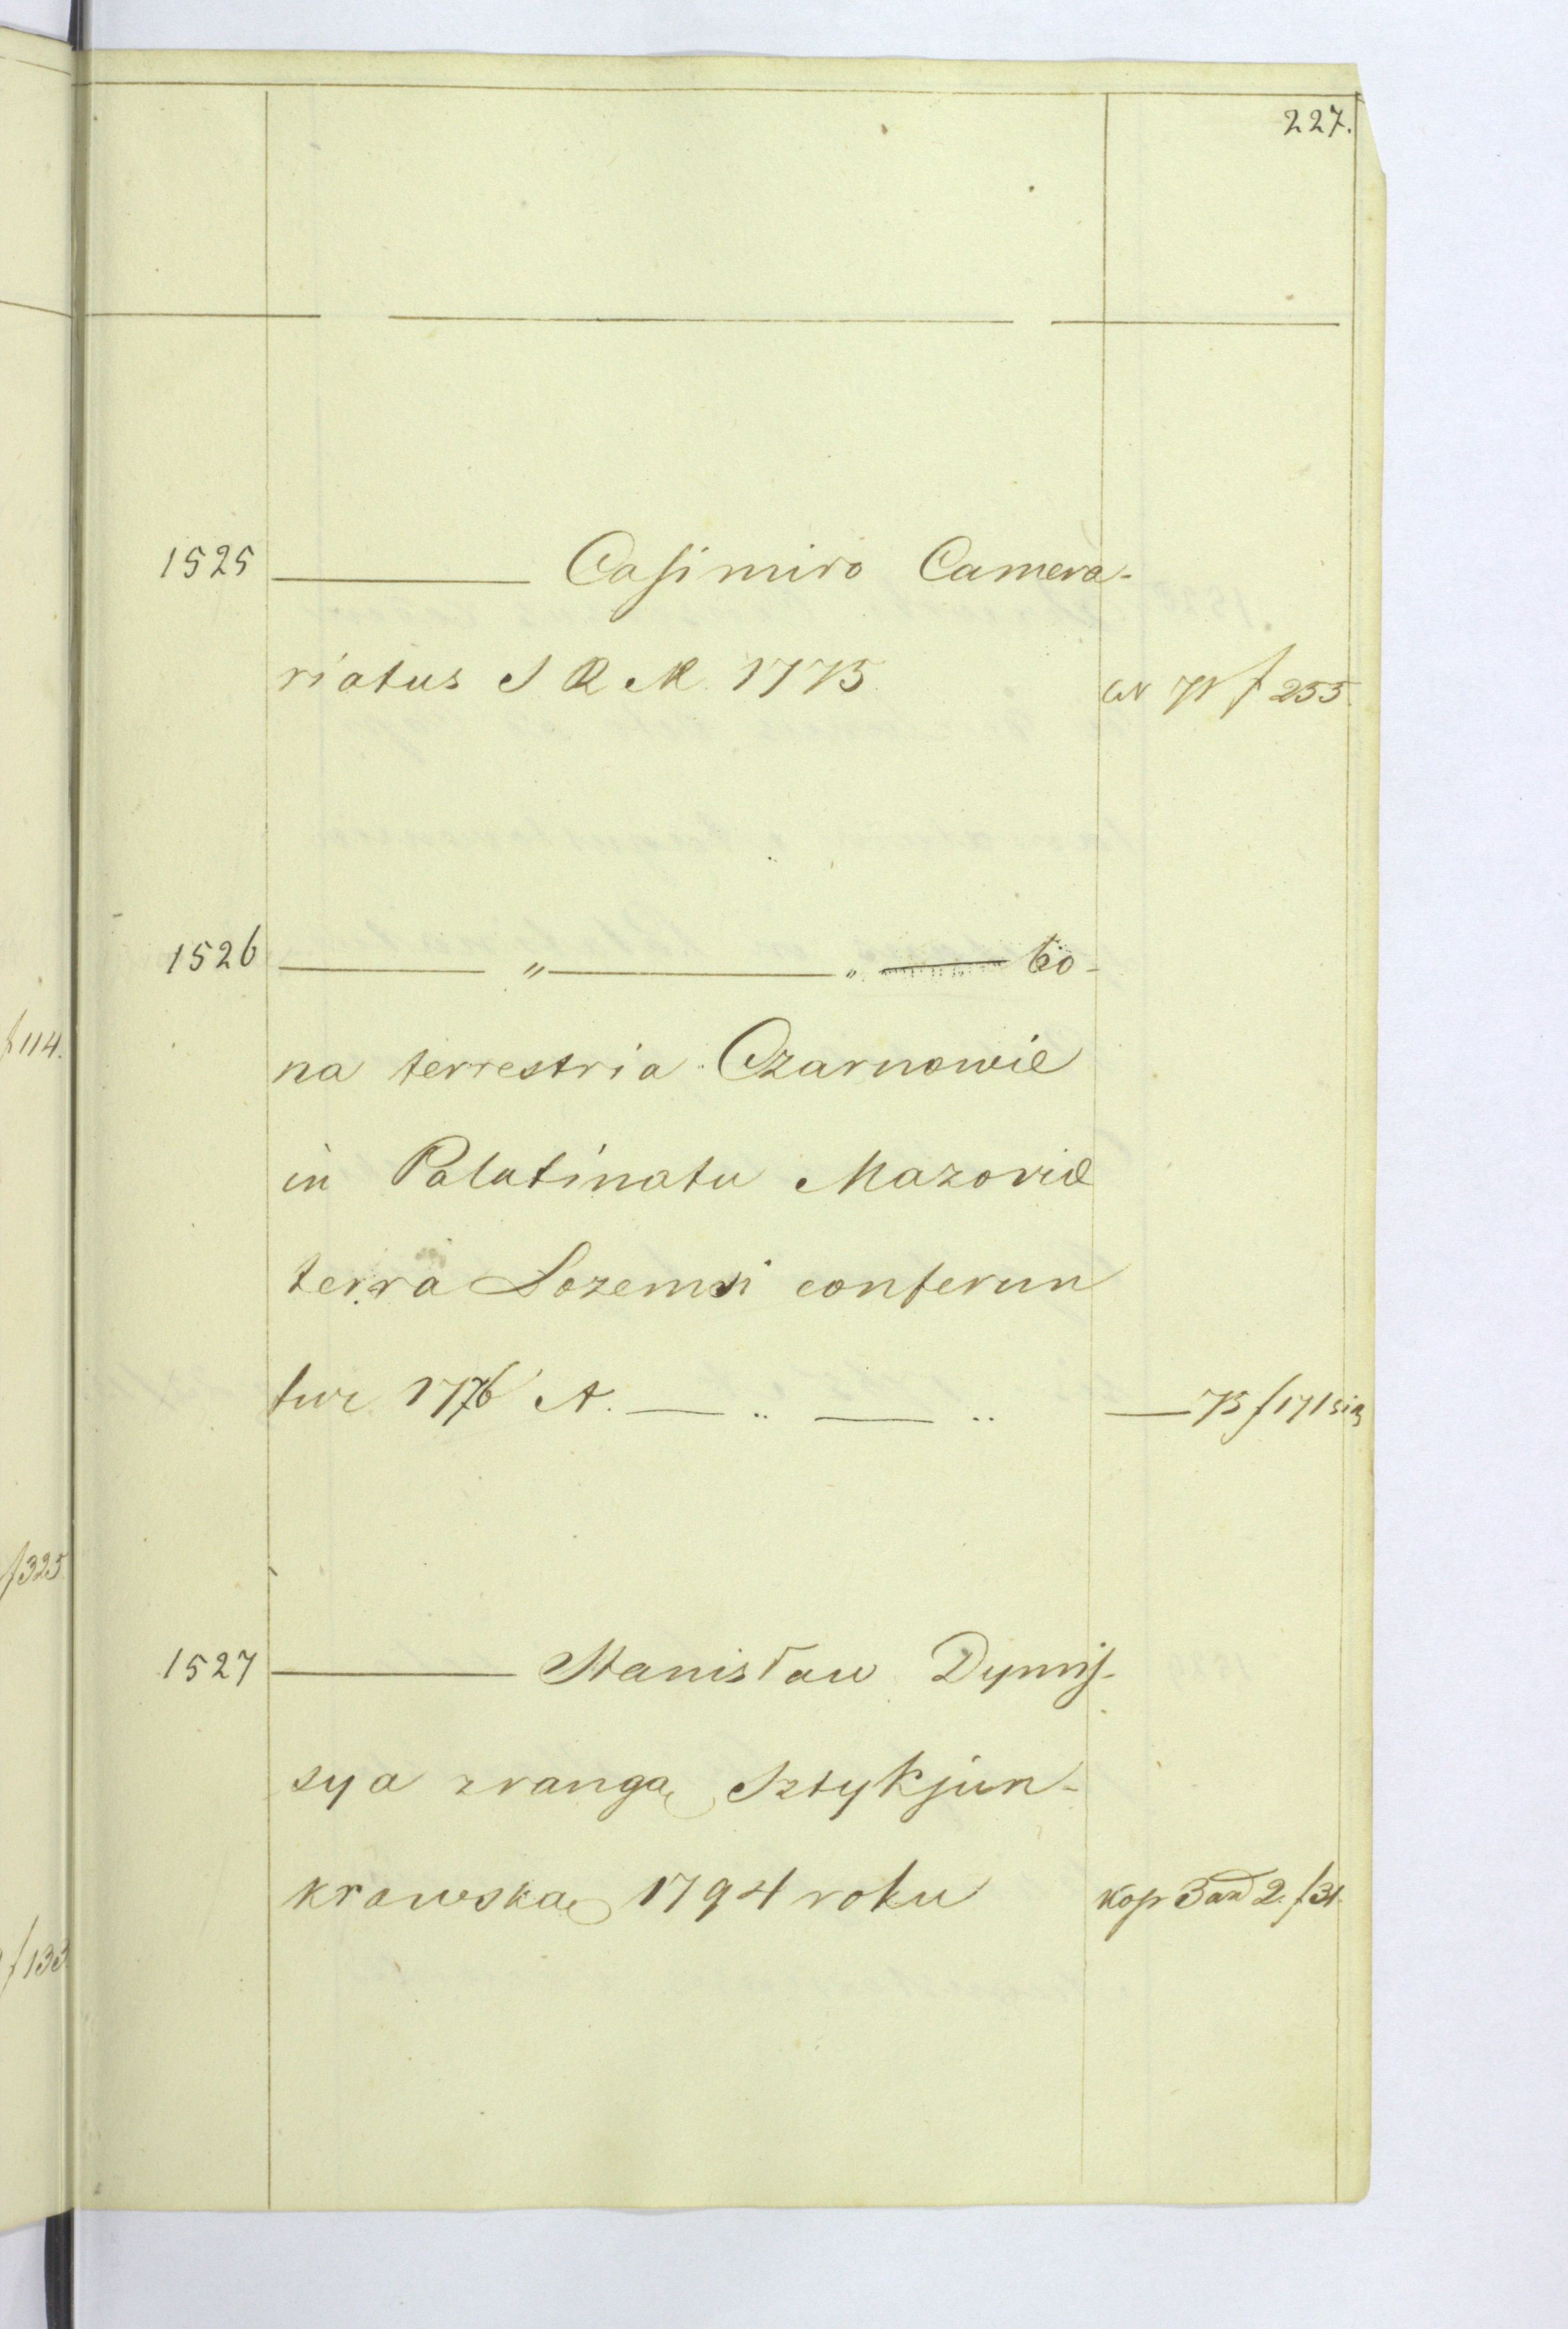 227.
1525 ——— Casimiro Camera-
riatus S R M. 1775 W 71 f 255.
1526 ——— „ ——— „ Bo-
f 114.
na terrestria Czarnowie
in Palatinatu Mazoviæ
terra Lozemsi conferun
tur 1776 A. — „ — „ — 75 f 171 sią
f 325
1527 ——— Stanisław Dymis-
sya z rangą Sztykjun-
krowską 1794 roku kop 3 ad 2. f 31.
f 133